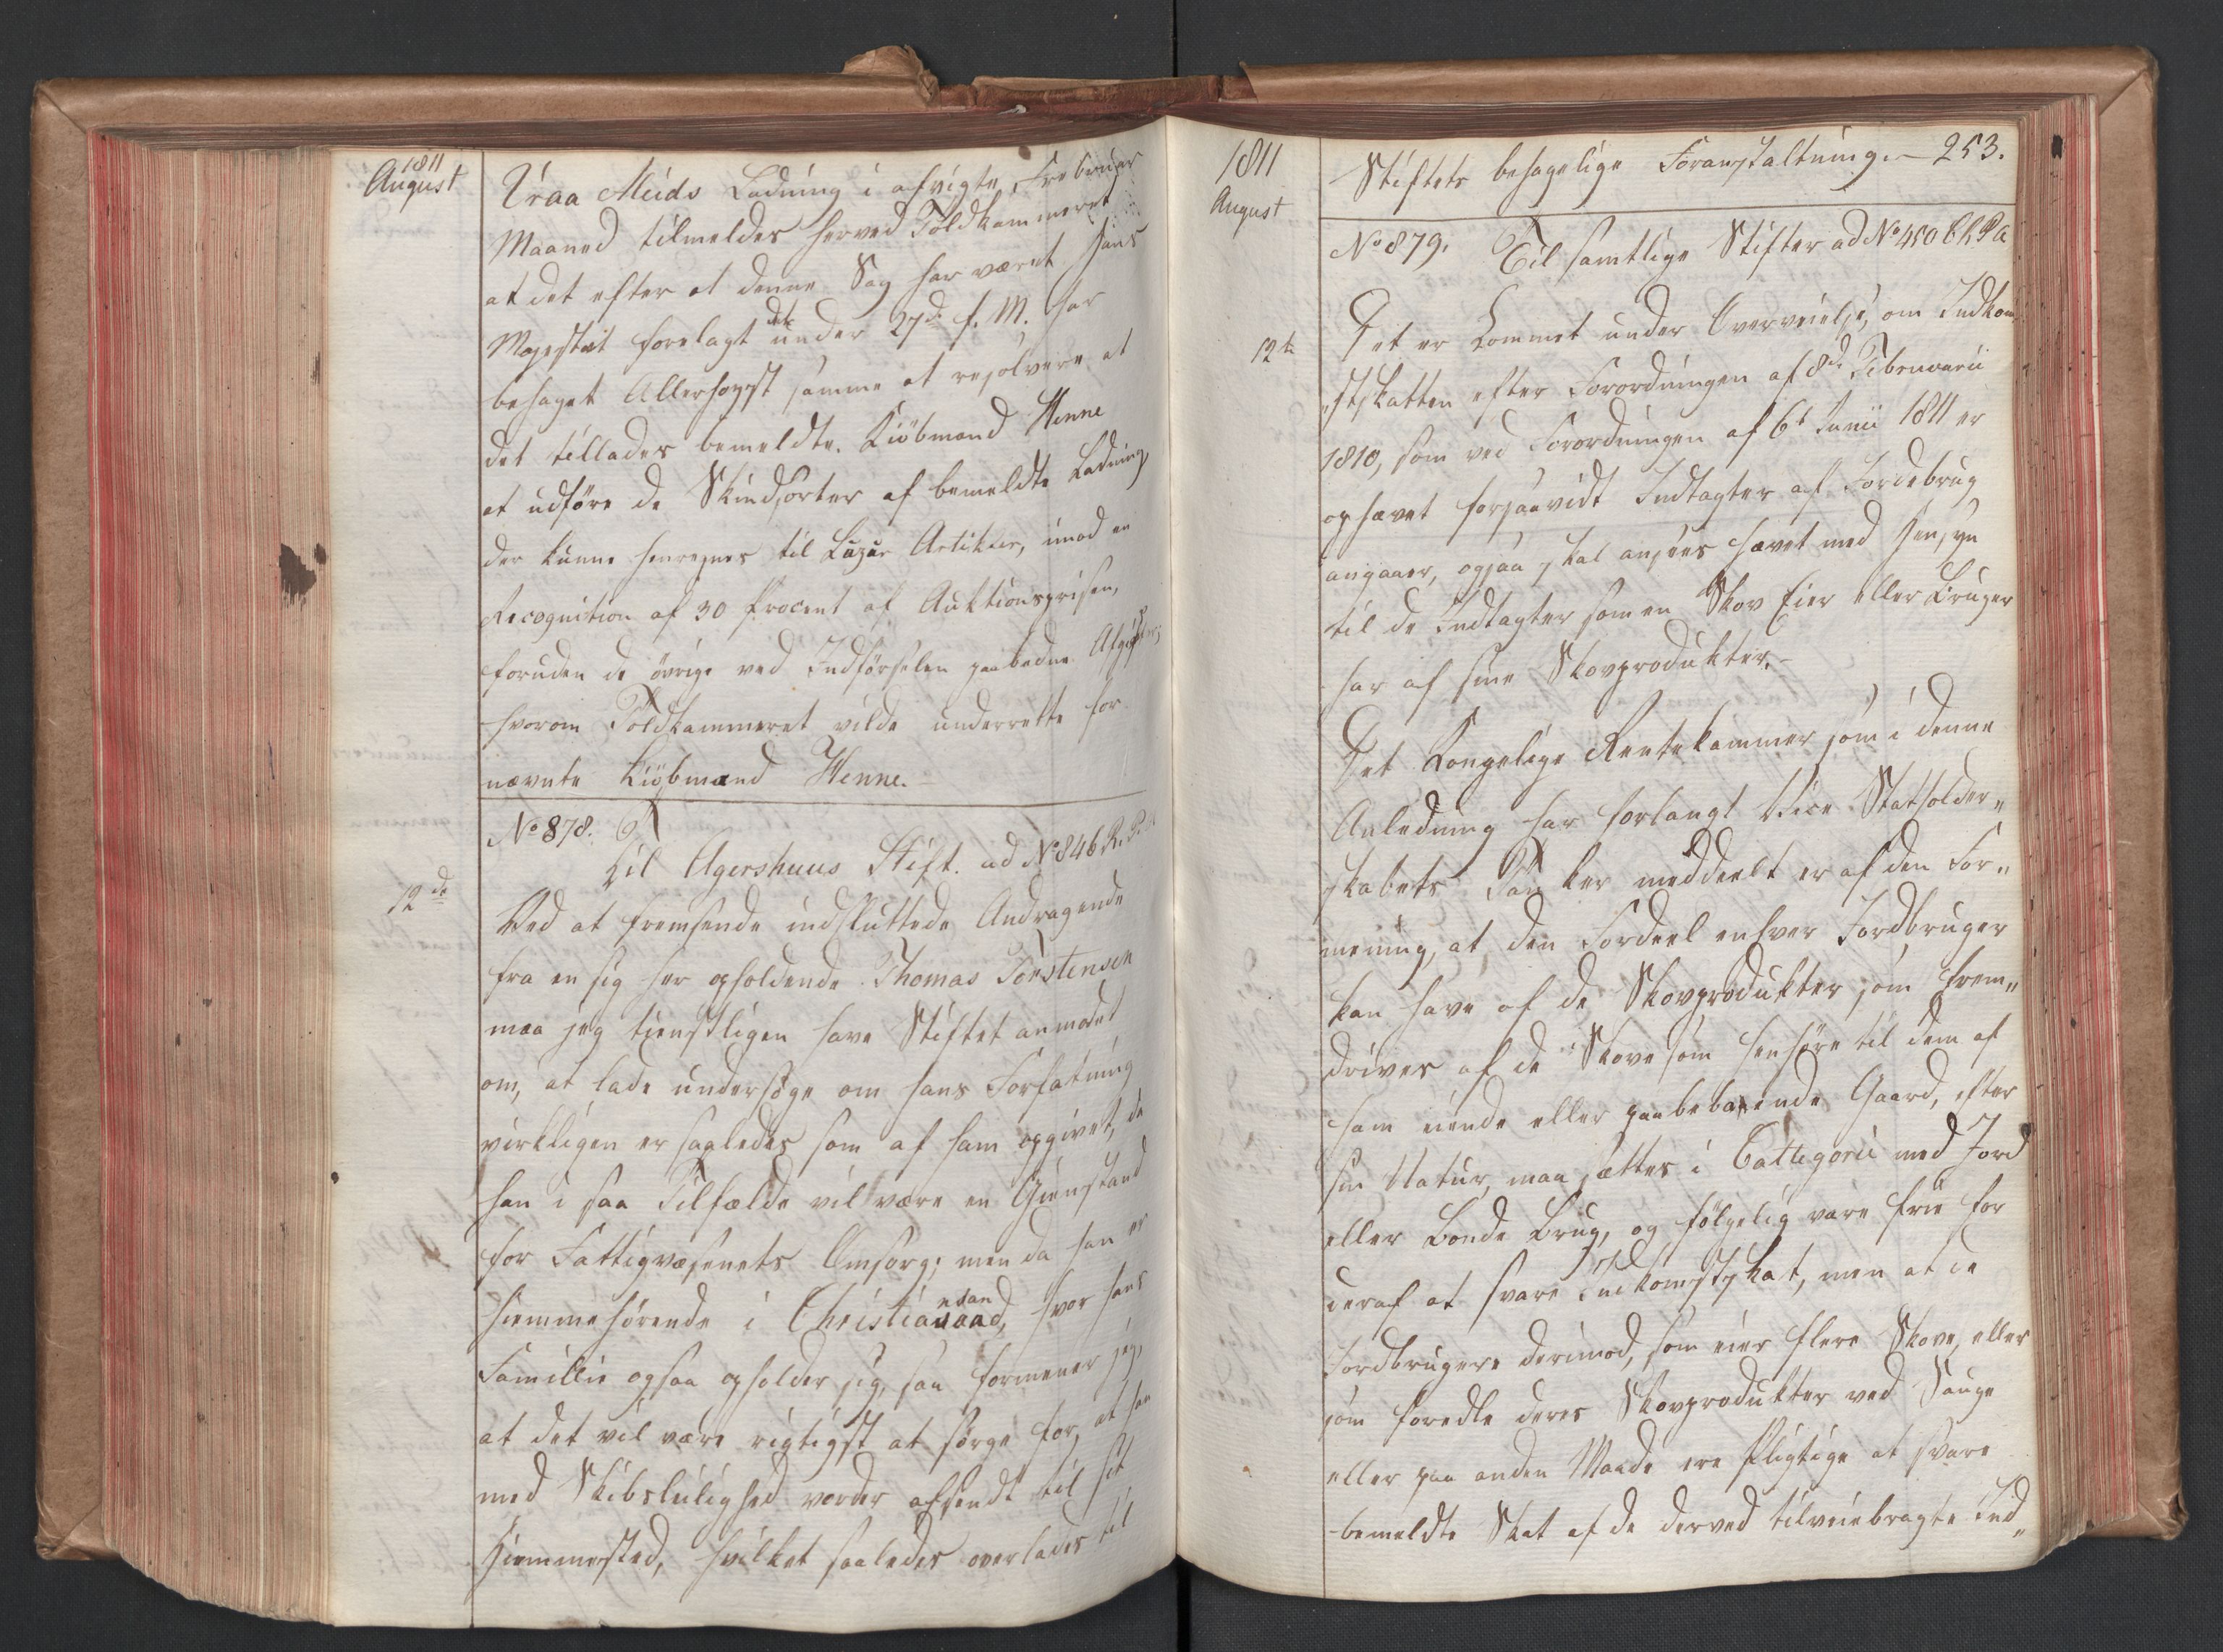 1811
August
Uraa Meids Ladning i afvigte Februar
Maaned tilmeldes herved Toldkammeret
at det efter at denne Sag har været Hans
Majestæt forelagt dets under 27de f. M. har
behaget Allerhøyst samme at resolvere at
det tillades bemeldte Kiöbmand Henne
at udföre de Skindsorter af bemeldte Ladning,
der kunne henregnes til Luxus Artikler, imod en
Recognition af 30 Procent af Auktionsprisen,
foruden de övrige ved Indförselen paabudne Afgifter;
hvorom Toldkammeret vilde underrette for-
nævnte Kiöbmand Henne.
No 878.
Til Agershuus Stift. ad No 846 R. P. A
12de
Ved at fremsende indsluttede Andragende
fra en sig her opholdende Thomas Torstensen
maa jeg tienstligen have Stiftet anmodet
om, at lade undersöge om hans Forfatning
virkligen er saaledes som af ham opgivet, da
han i saa Tilfælde vil være en Gienstand
for Fattigvæsenets Omsorg; men da han er
hiemmehörende i Christiansand, hvor hans
Familie ogsaa opholder sig, saa formener jeg,
at det vil være rigtigst at sörge for, at han
med Skibsleilighed vorder afsendt til sit
Hiemmested, hvilket saaledes overlades til
1811
August
Stiftets behagelige Foranstaltning.— 253.
No 879. Til samtlige Stifter ad No 450 Ch. P. A
12te
Det er kommet under Overveielse, om Indkom-
stskatten efter Forordningen af 8de Februarii
1810, som ved Forordningen af 6te Junii 1811 er
ophævet forsaavidt Indtægter af Jordebrug
angaaer, ogsaa skal ansees hævet med Hensyn
til de Indtægter som en Skov Eier eller Bruger
har af sine Skovprodukter.-
Det Kongelige Rentekammer som i denne
Anledning har forlangt Vice Statholder„
skabets Tanker meddeelt er af den For„
mening, at den Fordeel enhver Jordbruger
kan have af de Skovprodukter som frem„
drives af de Skove som henhöre til dem af
ham eiende eller paaboende Gaard, efter
sin Natur, maa sættes i Cattegorie med Jord
eller Bonde Brug, og fölgelig være frie for
deraf at svare Indkomstskat, men at de
Jordbrugere derimod, som eier flere Skove, eller
som foredle deres Skovprodukter ved Sauge
eller paa anden Maade ere pligtige at svare
bemeldte Skat af de derved tilveiebragte Ind„